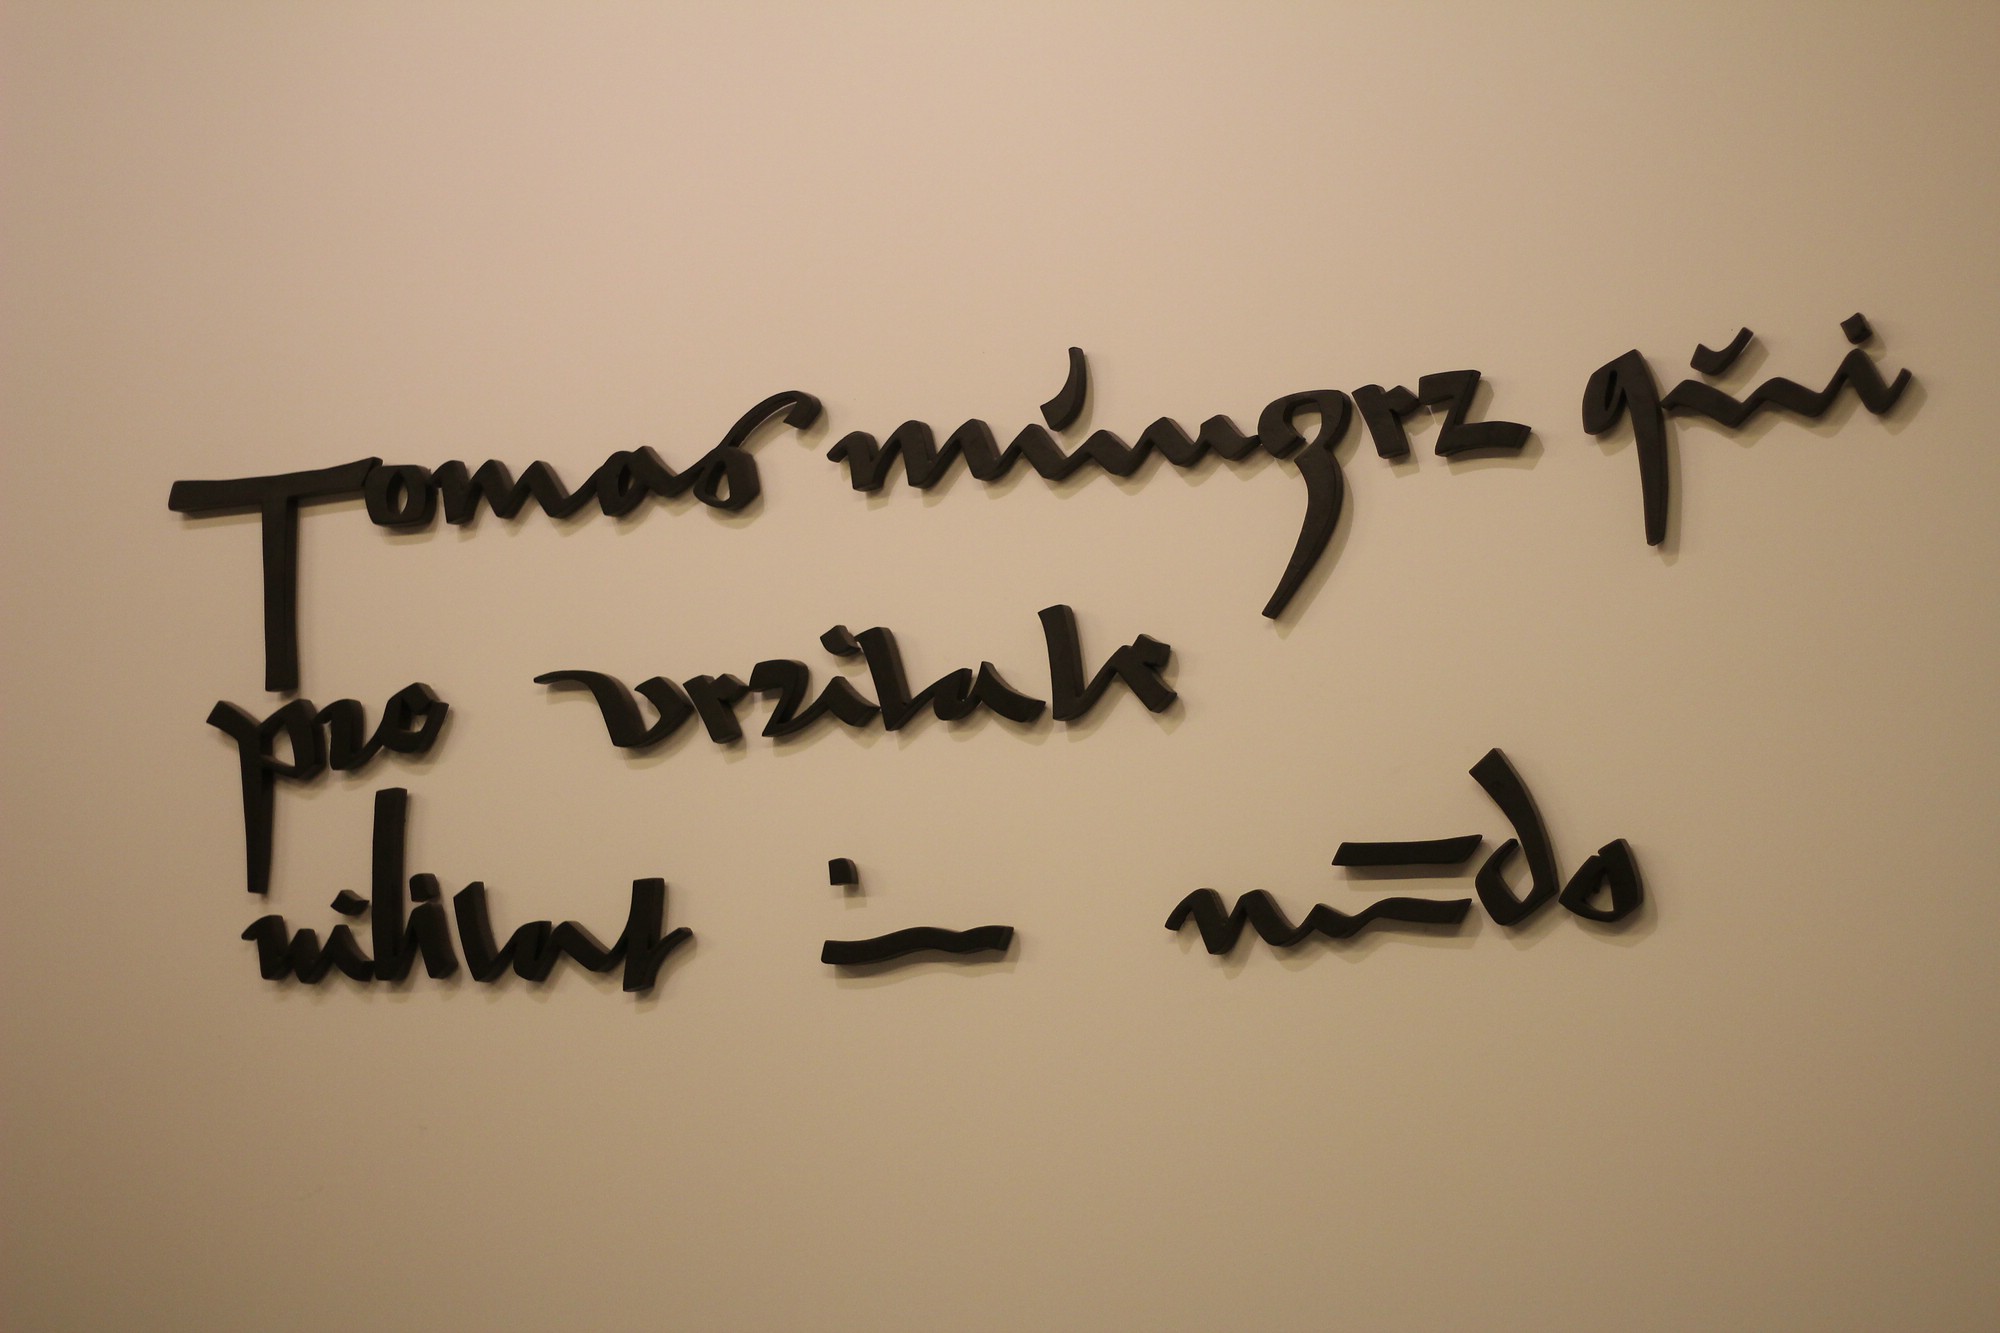 Tomas műngrz qui
pro vrzitate
militat in mūdo